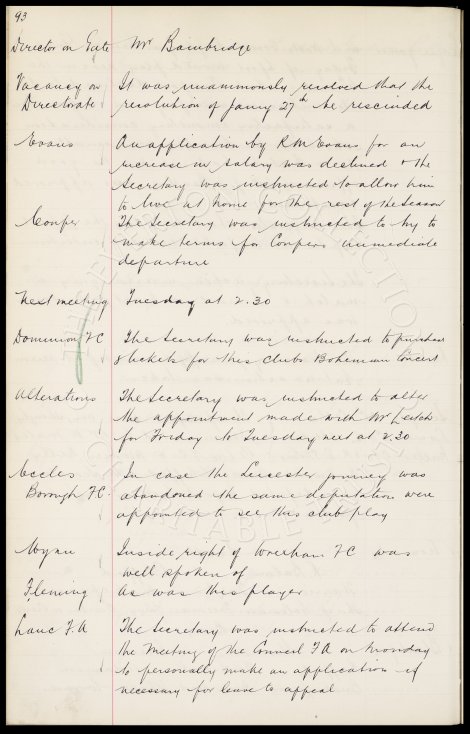 93
Director on Gate Mr Bainbridge
Vacancy on It was unanimously resolved that the
Directorate resolution of Jany 27th be rescinded
Evans An application by R M Evans for an
increase in salary was declined & the
Secretary was instructed to allow him
to live at home for the rest of the Season
Couper The Secretary was instructed to try to
make terms for Coupers immediate
departure
Next meeting Tuesday at 2.30
Dominion FC The Secretary was instructed to purchase
8 tickets for this clubs Bohemian Concert
Alterations The Secretary was instructed to alter
the appointment made with Mr Leitch
for Friday to Tuesday next at 2.30
Eccles In case the Leicester journey was
Borough FC. abandoned the same deputation were
appointed to see this club play
Wynn Inside right of Wrexham FC was
well spoken of
Fleming As was this player
Lanc F.A The Secretary was instructed to attend
the Meeting of the Council FA on Monday
to personally make an application if
necessary for leave to appeal